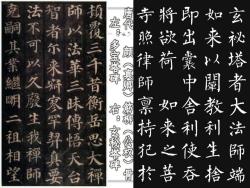 玄秘塔者大法師端
如來以闡教利生捨
即出囊中舍利使吞
將欲荷 如來之菩
寺照律師稟持犯於
左：多宝塔碑
右：玄秘塔碑
頓覆三千昔衡岳思大禪
師以法華三昧傳悟天台
智者爾來寂寥罕契真要
法不可以久廢生我禪師
克嗣其業繼明二祖相望